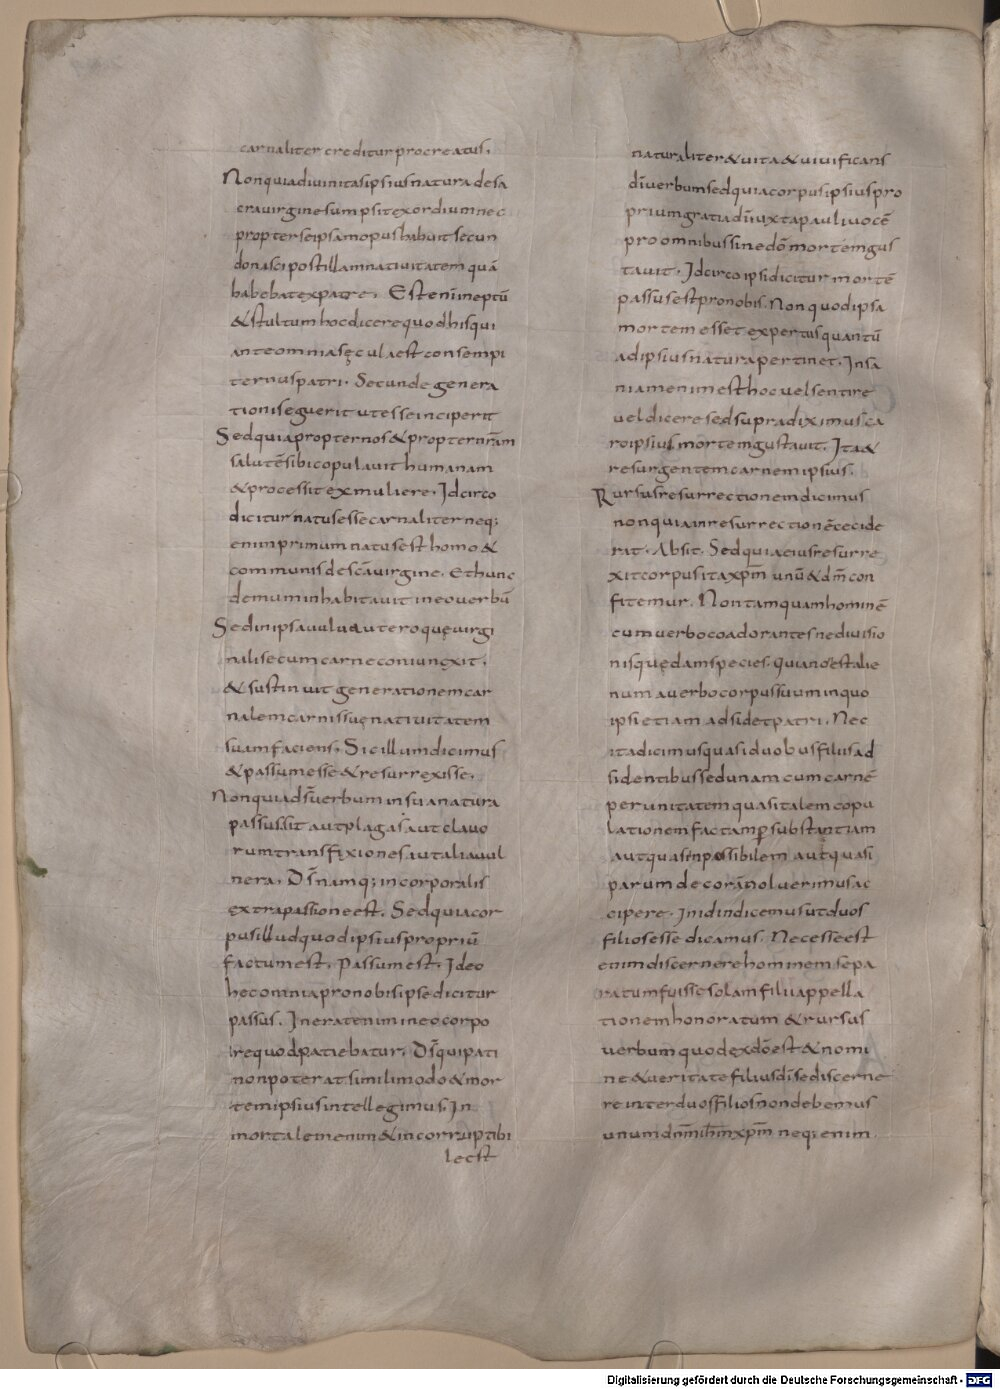 carnaliter creditur procreatus.
Non quia divinitas ipsius natura de sa
cra virgine sumpsit exordium nec
propter seipsam opus habuit secun
do nasci post illam nativitatem quā
habebat ex patre. Est enim eptū
& stultum hoc dicere quod his qui
ante omnia sęcula est consempi
ternus patri. Secunde genera
tionis eguerit ut esse inciperit
Sed quia propter nos & propter nr̄am
salutē sibi copulavit humanam
& processit ex muliere. Idcirco
dicitur natus esse carnaliter neq;
enim primum natus est homo &
communis de sc̄a virgine. Et hunc
demum inhabitavit in eo verbū
Sed in ipsa vulva uteroquę virgi
nali se cum carne coniunxit.
& sustinuit generationem car
nalem carnis suę nativitatem
suam faciens. Sic illum dicimus
& passum esse & resurrexisse.
Non quia ds̄ verbum in sua natura
passus sit aut plagas aut clavo
rum transfixiones aut alia vul
nera. Ds̄ namq; incorporalis
extra passione est. Sed quia cor
pus illud quod ipsius propriū
factum est. Passum est. Ideo
hec omnia pro nobis ipse dicitur
passus. Inerat enim in eo corpo
re quod patiebatur. Ds̄ qui pati
non poterat simili modo & mor
tem ipsius intellegimus. In
mortalem enim & incorruptibi
le est
naturaliter & vita & vivificans
dī verbum sed quia corpus ipsius pro
prium gratia dī iuxta pauli vocē
pro omnibus sine dō mortem gus
tavit. Idcirco ipsi dicitur mortē
passus est pro nobis. Non quod ipsa
mortem esset expertus quantū
ad ipsius natura pertinet. Insa
niam enim est hoc vel sentire
vel dicere sed supra diximus ca
ro ipsius mortem gustavit. Ita &
resurgentem carnem ipsius.
Rursus resurrectionem dicimus
non quia in resurrectionē cecide
rit. Absit. Sed quia eius resurre
xit corpus ita xp̄m unū & dm̄ con
fitemur. Non tamquam hominē
cum verbo coadorantes ne divisio
nis quędam species. Quia nō est alie
num a verbo corpus suum in quo
ipsi etiam adsidet patri. Nec
ita dicimus quasi duobus filiis ad
sidentibus sed unam cum carnē
per unitatem quasi talem copu
lationem factam p̄ substantiam
aut quasi inpossibilem aut quasi
parum decorā noluerimus ac
cipere. In id indicemus ut duos
filios esse dicamus. Necesse est
enim discernere hominem sepa
ratum fuisse sola m filii appella
tionem honoratum & rursus
verbum quod ex dō est & nomi
ne & veritate filius dī sed discerne
re inter duos filios non debemus
unum dnm̄ ihm̄ xpm̄ neq; enim